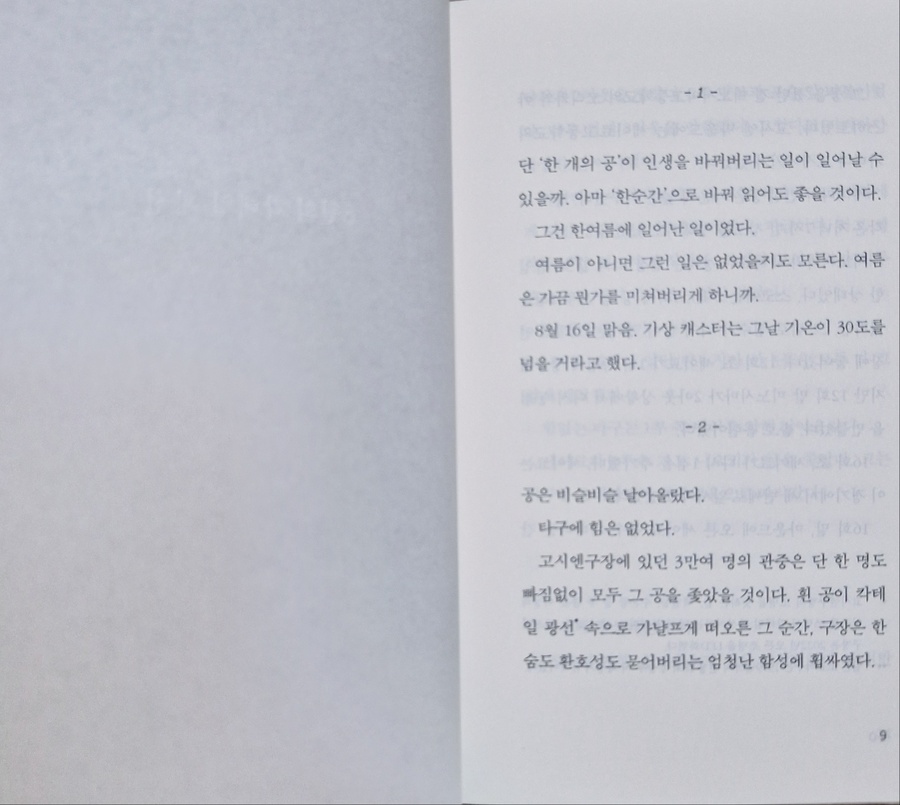 - 1 -
단 '한 개의 공'이 인생을 바꿔버리는 일이 일어날 수
있을까. 아마 '한순간'으로 바꿔 읽어도 좋을 것이다.
그건 한여름에 일어난 일이었다.
여름이 아니면 그런 일은 없었을지도 모른다. 여름
은 가끔 뭔가를 미쳐버리게 하니까.
8월 16일 맑음. 기상 캐스터는 그날 기온이 30도를
넘을 거라고 했다.
- 2 -
공은 비슬비슬 날아올랐다.
타구에 힘은 없었다.
고시엔구장에 있던 3만여 명의 관중은 단 한 명도
빠짐없이 모두 그 공을 좇았을 것이다. 흰 공이 칵테
일 광선* 속으로 가냘프게 떠오른 그 순간, 구장은 한
숨도 환호성도 묻어버리는 엄청난 함성에 휩싸였다.
9